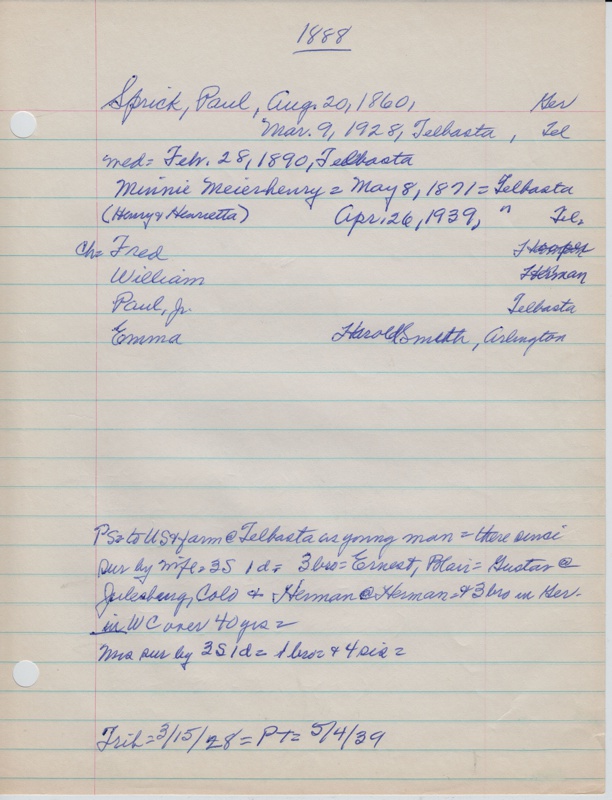 1888
Sprick, Paul, Aug. 20, 1860, Ger
Mar. 9, 1928, Telbasta, Tel
med= Feb. 28, 1890, Telbasta
Minnie Meierhenry = May 8, 1871 = Telbasta
(Henry & Henrietta) Apr. 26, 1939, " Tel.
Ch= Fred
William Herman
Paul, Jr. Telbasta
Emma Harold Smith, Arlington
PS= to US & farm @ Telbasta as young man = there since
sur by wife = 3S 1d = 3 bro = Ernest, Blair = Gustav @
Julesburg, Colo & Herman @ Herman = & 3 bro in Ger-
in WC over 40 yrs =
Mrs sur by 3S 1d = 1 bro = & 4 sis =
Trib = 3/15/28 = PT = 5/4/39